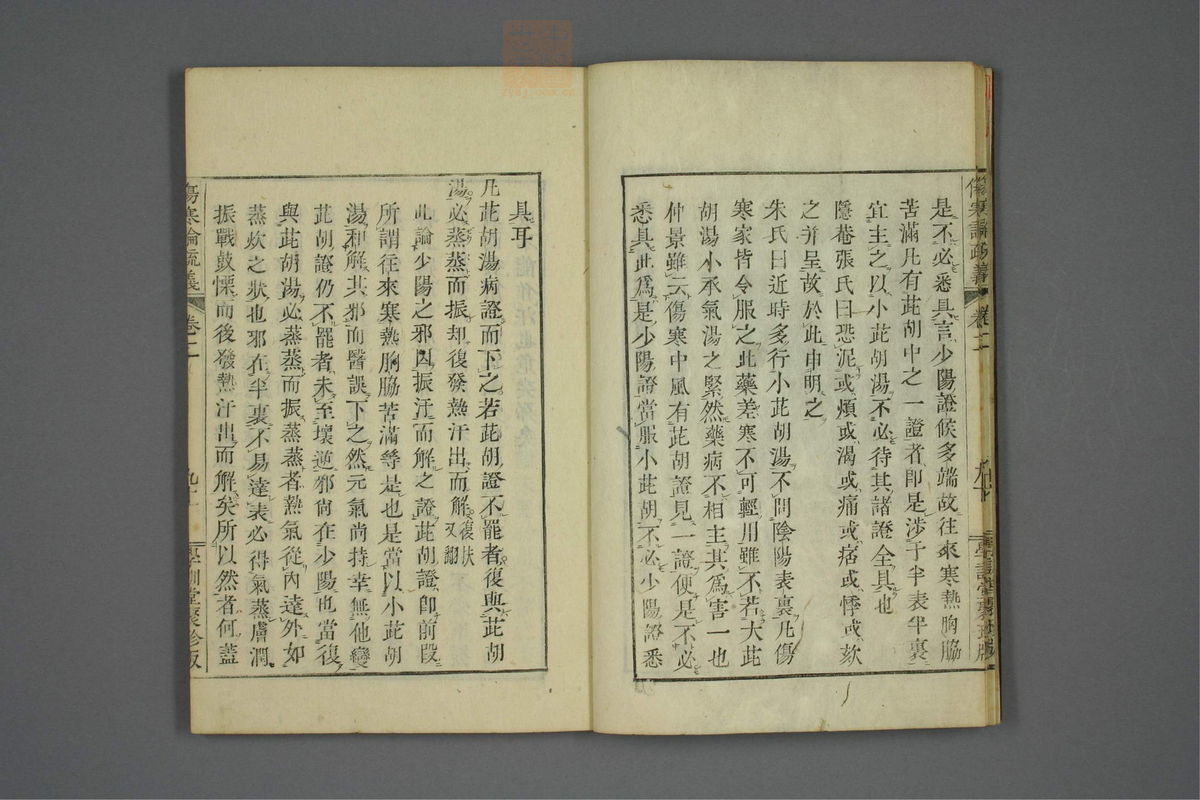 是不必悉具言少陽證候多端故往來寒熱胸脇
苦滿凡有茈胡中之一證者卽是涉于半表半裏
宜主之以小茈胡湯不必待其諸證全具也
隱菴張氏曰恐泥或煩或渴或痛或痞或悸或欬
之并呈故於此申明之
朱氏曰近時多行小茈胡湯不問陰陽表裏凡傷
寒家皆令服之此藥差寒不可輕用雖不若大茈
胡湯小承氣湯之緊然藥病不相主其爲害一也
仲景雖云傷寒中風有茈胡證見一證便是不必
悉具此爲是少陽證當服小茈胡不必少陽證悉
具耳
凡茈胡湯病證而下之若茈胡證不罷者復與茈胡
湯必蒸蒸而振却復發熱汗出而解復扶又翻
此論少陽之邪因振汗而解之證茈胡證卽前段
所謂往來寒熱胸脇苦滿等是也是當以小茈胡
湯和解其邪而醫誤下之然元氣尚持幸無他變
茈胡證仍不罷者未至壞逆邪尙在少陽也當復
與茈胡湯必蒸蒸而振蒸蒸者熱氣從內達外如
蒸炊之狀也邪在半裏不易達表必得氣蒸膚潤
振戰鼓慄而後發熱汗出而解矣所以然者何蓋
傷寒論疏義 卷二 學訓堂聚珍版